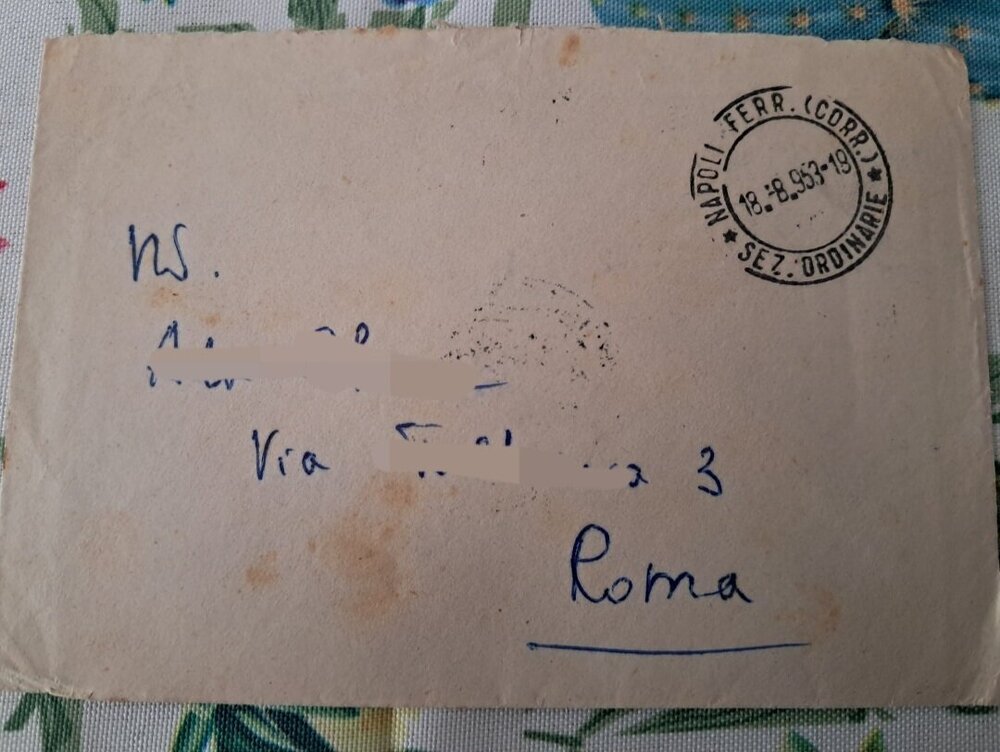 NAPOLI FERR. (CORR.)
18.-8.953-19
* SEZ. ORDINARIE *
NS.
Via 3
Roma